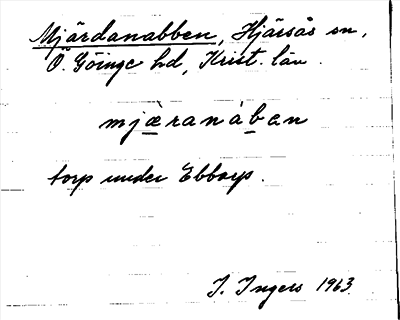 Mjärdanabben, Hjärsås sn,
Ö. Göinge hd, Krist. län.
mjæ̀ranàben
torp under Ebbarp.
I. Ingers 1963.